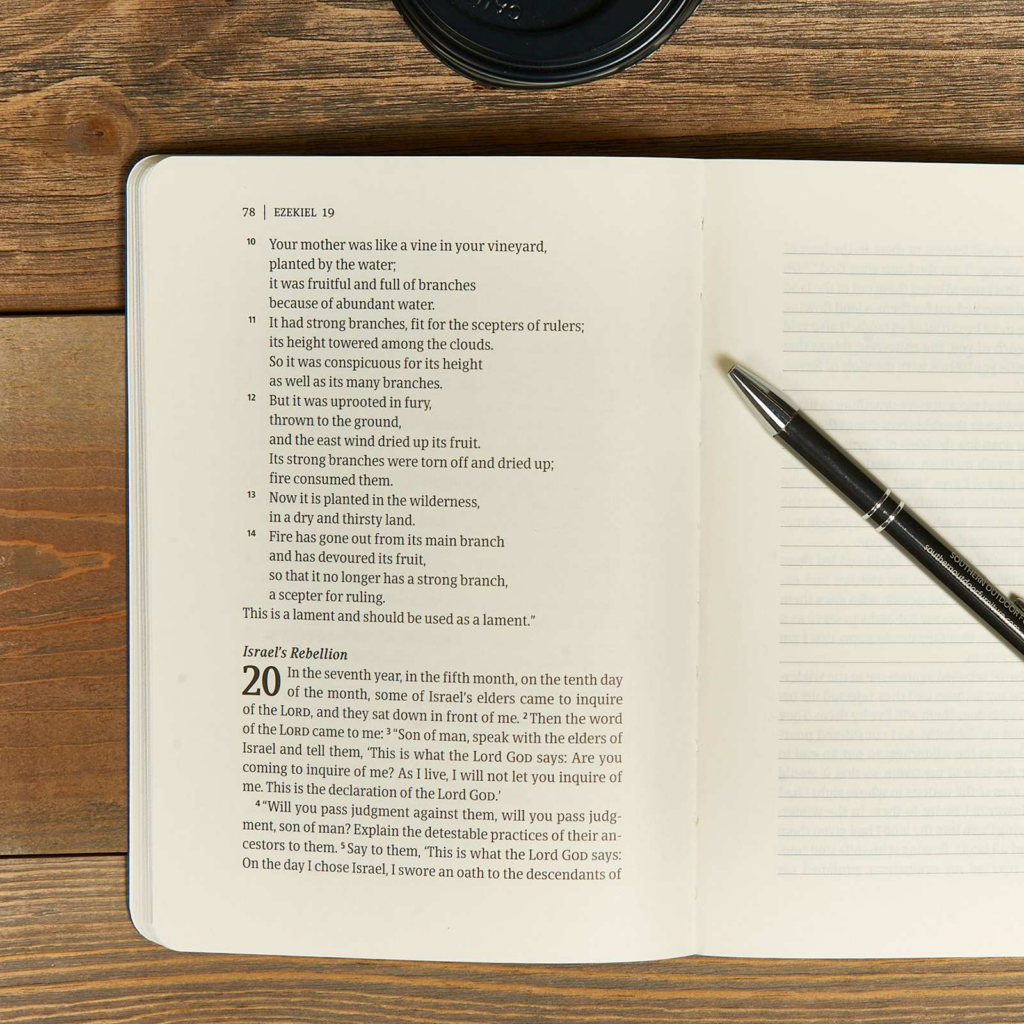 78 | EZEKIEL 19
10 Your mother was like a vine in your vineyard,
planted by the water;
it was fruitful and full of branches
because of abundant water.
11 It had strong branches, fit for the scepters of rulers;
its height towered among the clouds.
So it was conspicuous for its height
as well as its many branches.
12 But it was uprooted in fury,
thrown to the ground,
and the east wind dried up its fruit.
Its strong branches were torn off and dried up;
fire consumed them.
13 Now it is planted in the wilderness,
in a dry and thirsty land.
14 Fire has gone out from its main branch
and has devoured its fruit,
so that it no longer has a strong branch,
a scepter for ruling.
This is a lament and should be used as a lament."
Israel's Rebellion
20 In the seventh year, in the fifth month, on the tenth day
of the month, some of Israel's elders came to inquire
of the LORD, and they sat down in front of me. 2 Then the word
of the LORD came to me: 3 "Son of man, speak with the elders of
Israel and tell them, 'This is what the Lord GOD says: Are you
coming to inquire of me? As I live, I will not let you inquire of
me. This is the declaration of the Lord GOD.'
4 "Will you pass judgment against them, will you pass judg-
ment, son of man? Explain the detestable practices of their an-
cestors to them. 5 Say to them, 'This is what the Lord GOD says:
On the day I chose Israel, I swore an oath to the descendants of
SOUTHERN OUTDOOR
southernoutdoorfurniture.com